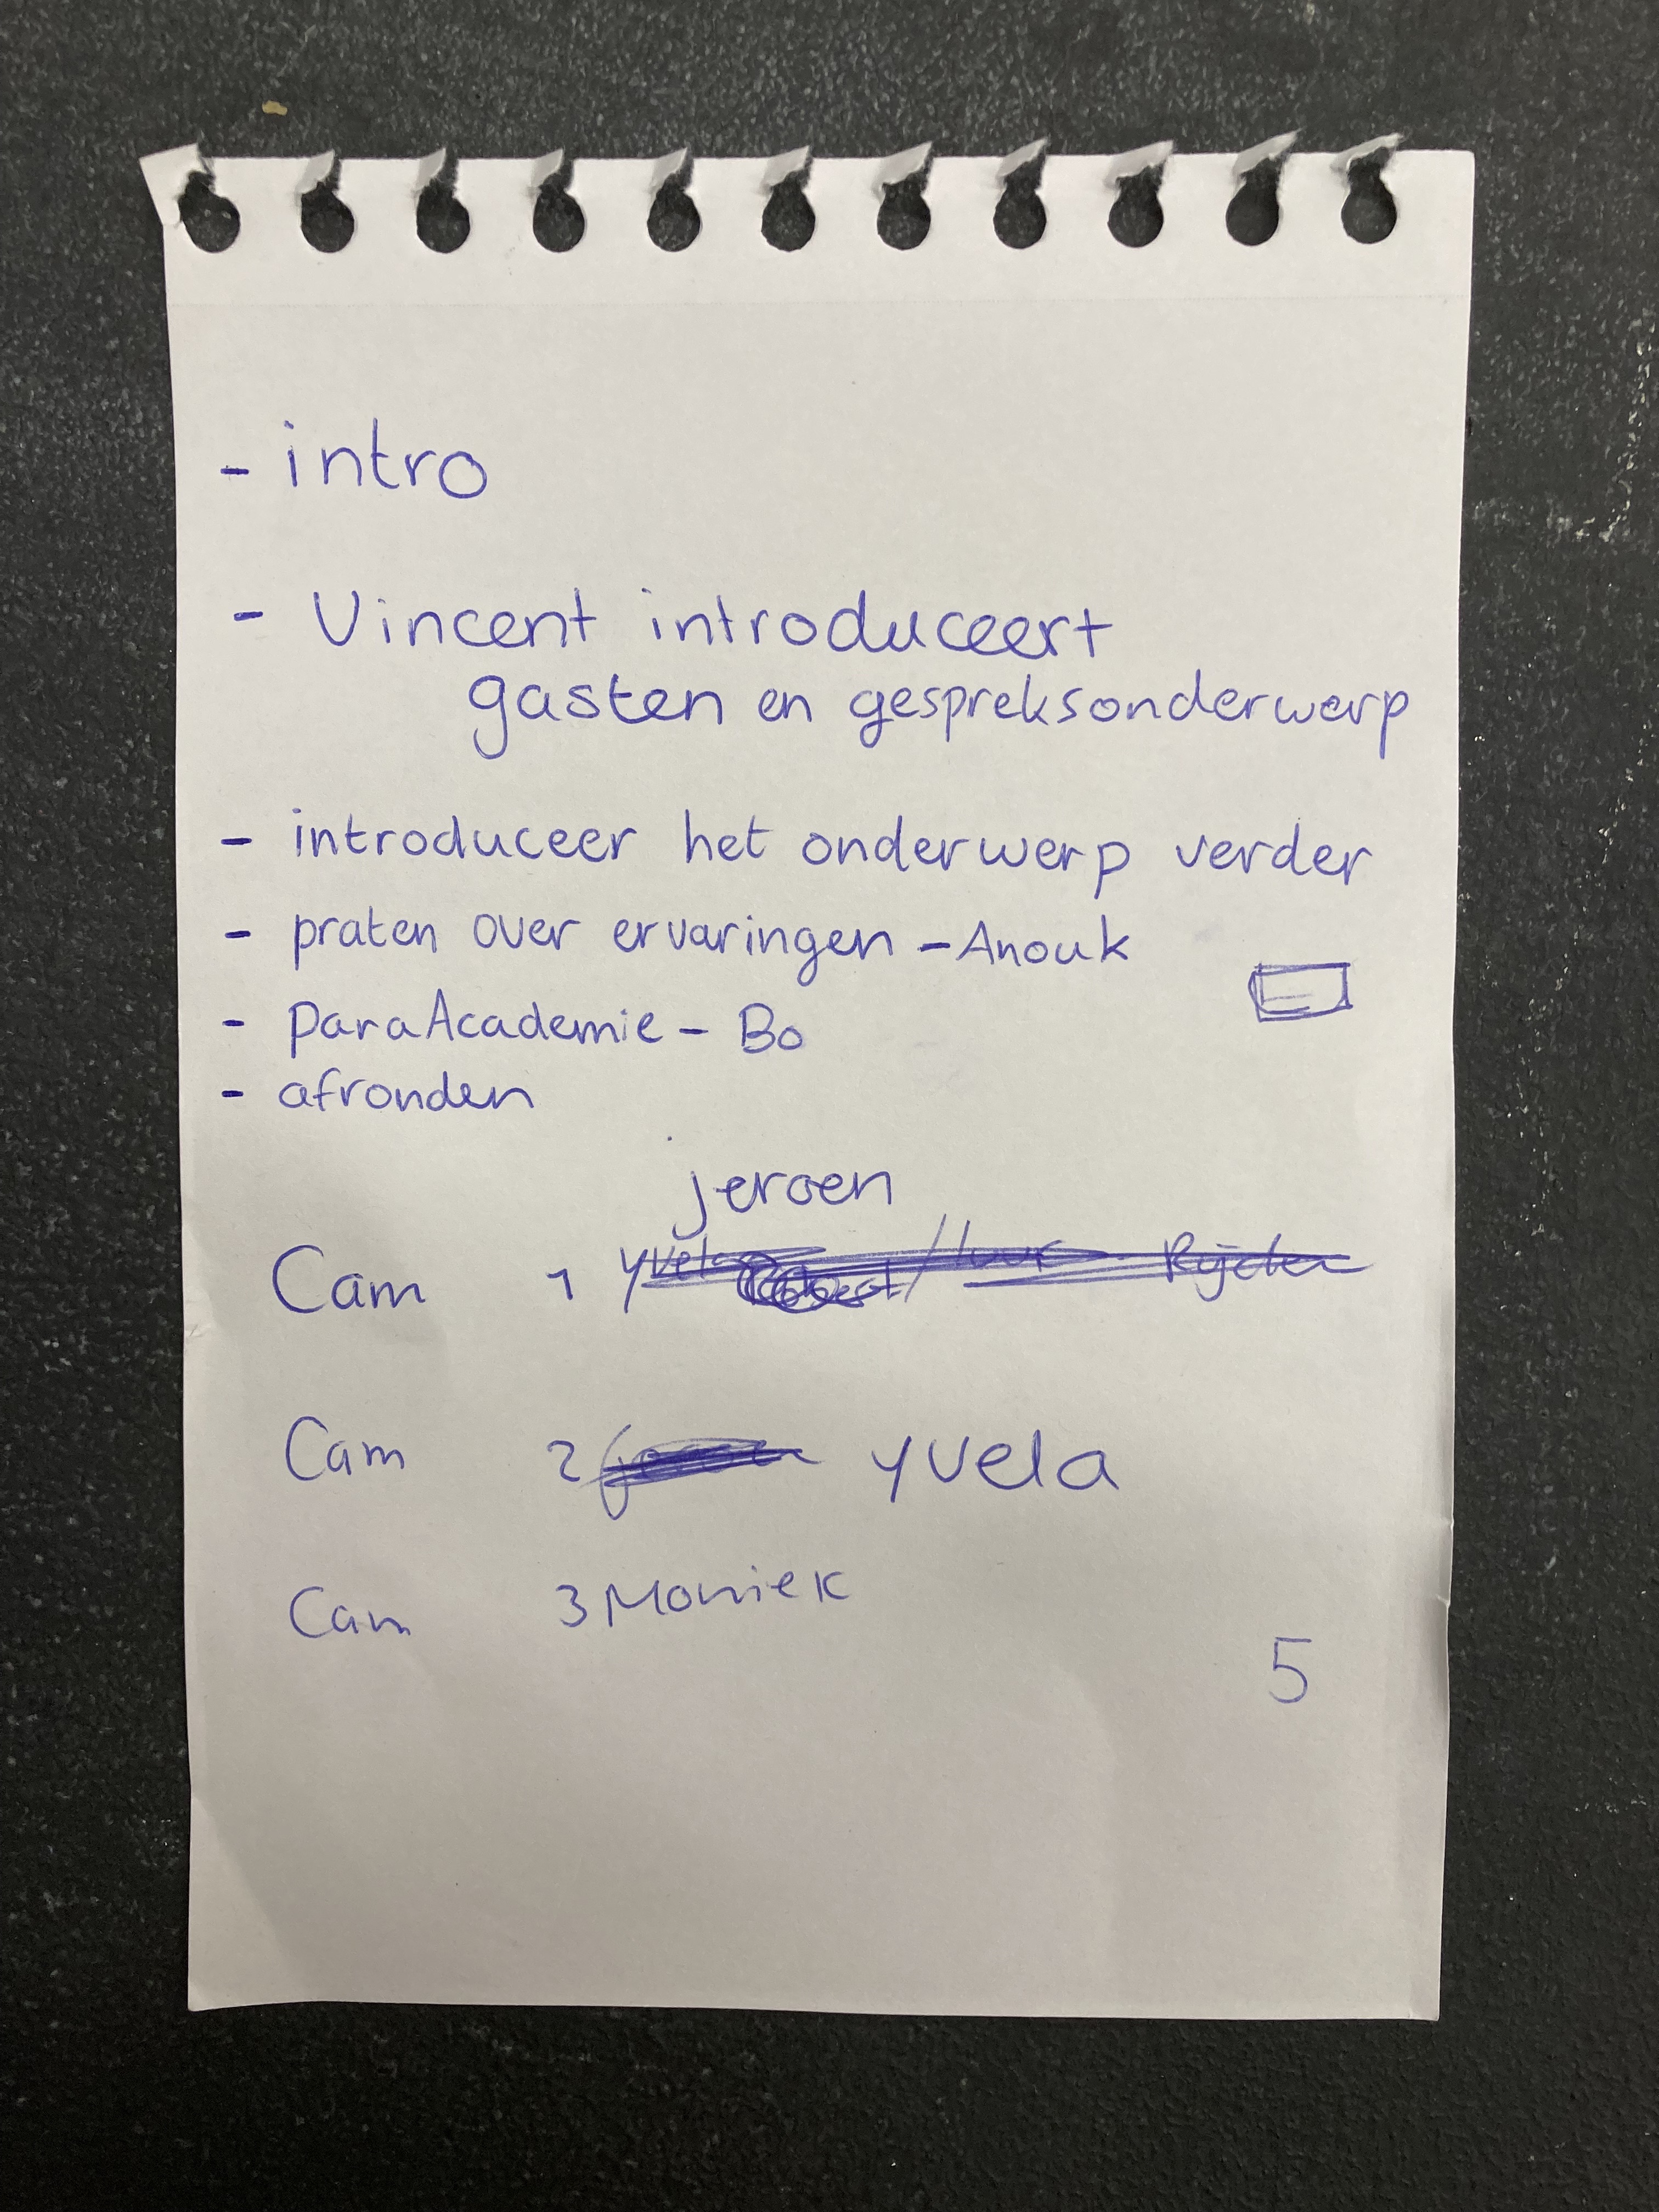 - intro
- Vincent introduceert
gasten en gespreksonderwerp
- introduceer het onderwerp verder
- praten over ervaringen - Anouk
- paraAcademie - Bo
- afronden
jeroen
Cam 1
Cam 2 yvela
Cam 3 Moniek
5